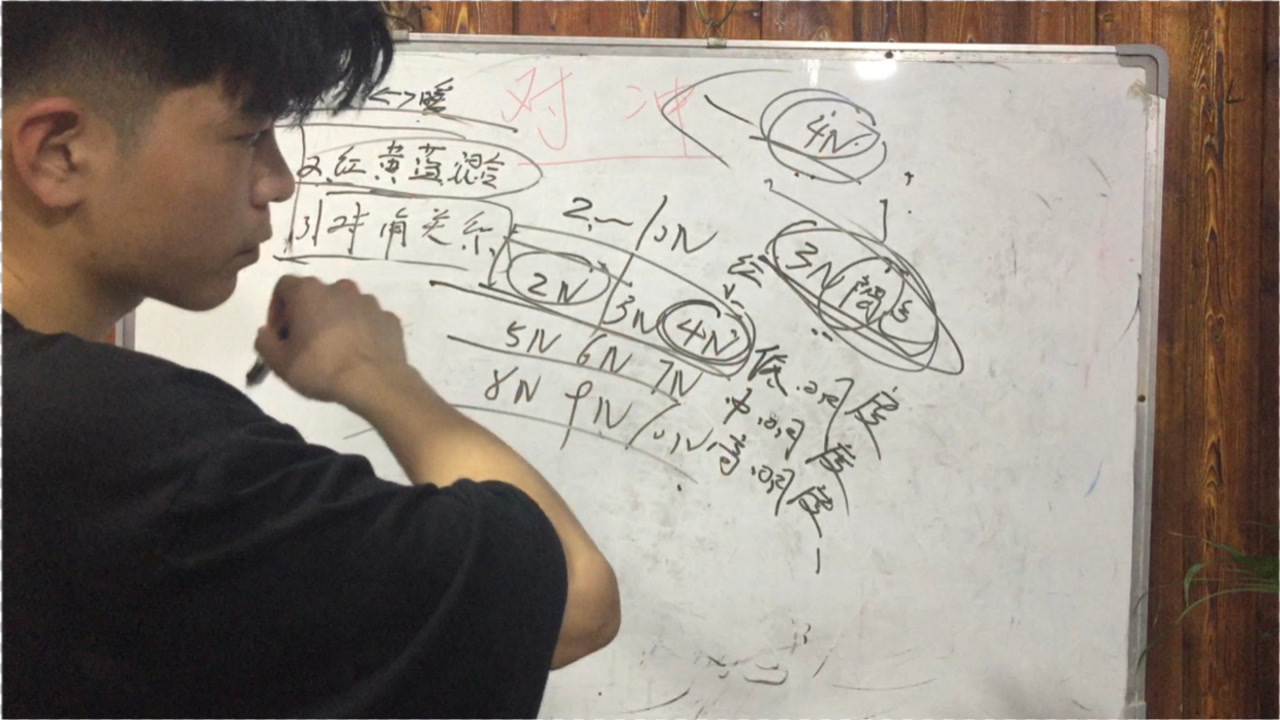 <>暖
对冲
4N
2红黄蓝混合
3/对角关系
2~10N
3N偏3
2N 3N 4N 低明度
5N 6N 7N 中明度
8N 9N 10N 高明度